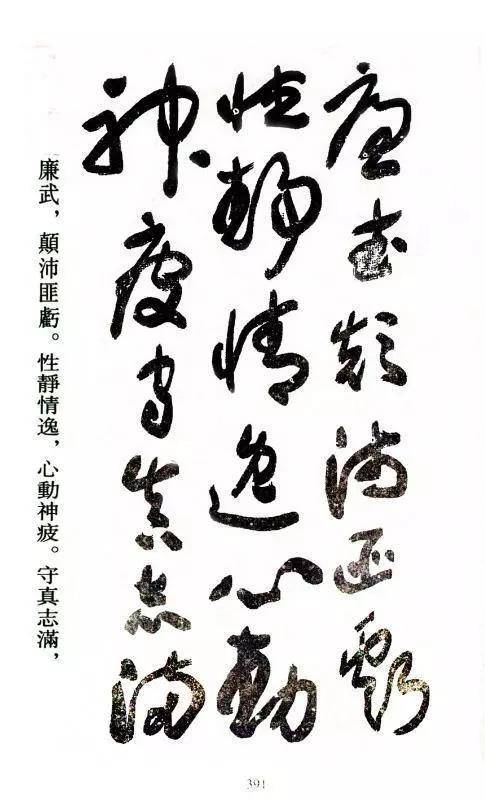 廉武顛沛匪虧
性靜情逸心動
神疲守真志滿
廉武，顛沛匪虧。性靜情逸，心動神疲。守真志滿，
391